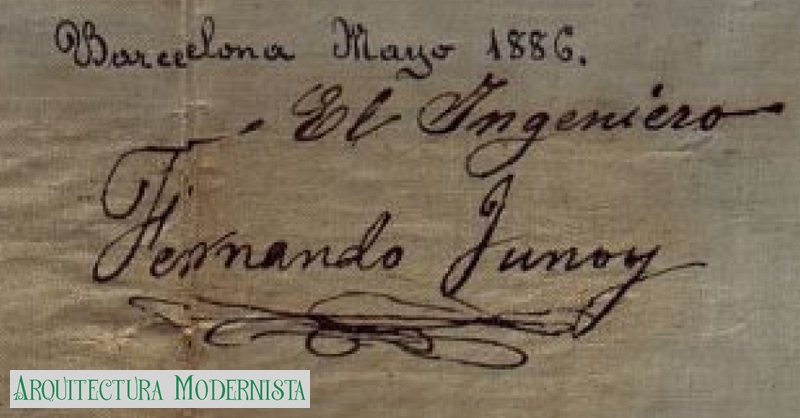 Barcelona Mayo 1886.
El Ingeniero
Fernando Junoy
ARQUITECTURA MODERNISTA